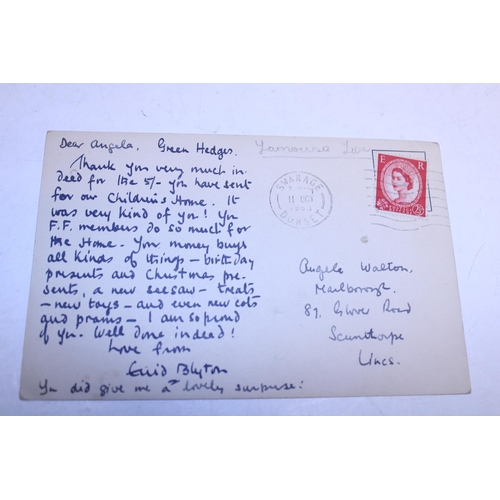 Dear Angela, Green Hedges.
Thank you very much in-
deed for the 5/- you have sent
for our Children's Home. It
was very kind of you! You
F.F. members do so much for
the Home. Your money buys
all kinds of things - birthday
presents and Christmas pre-
sents, a new seesaw - treats
- new toys - and even new cots
and prams - I am so proud
of you. Well done indeed!
Love from
Enid Blyton
You did give me a lovely surprise!
SWANAGE
11 OCT
DORSET
E R
Angela Walton,
Marlborough,
87, Glover Road
Scunthorpe
Lincs.